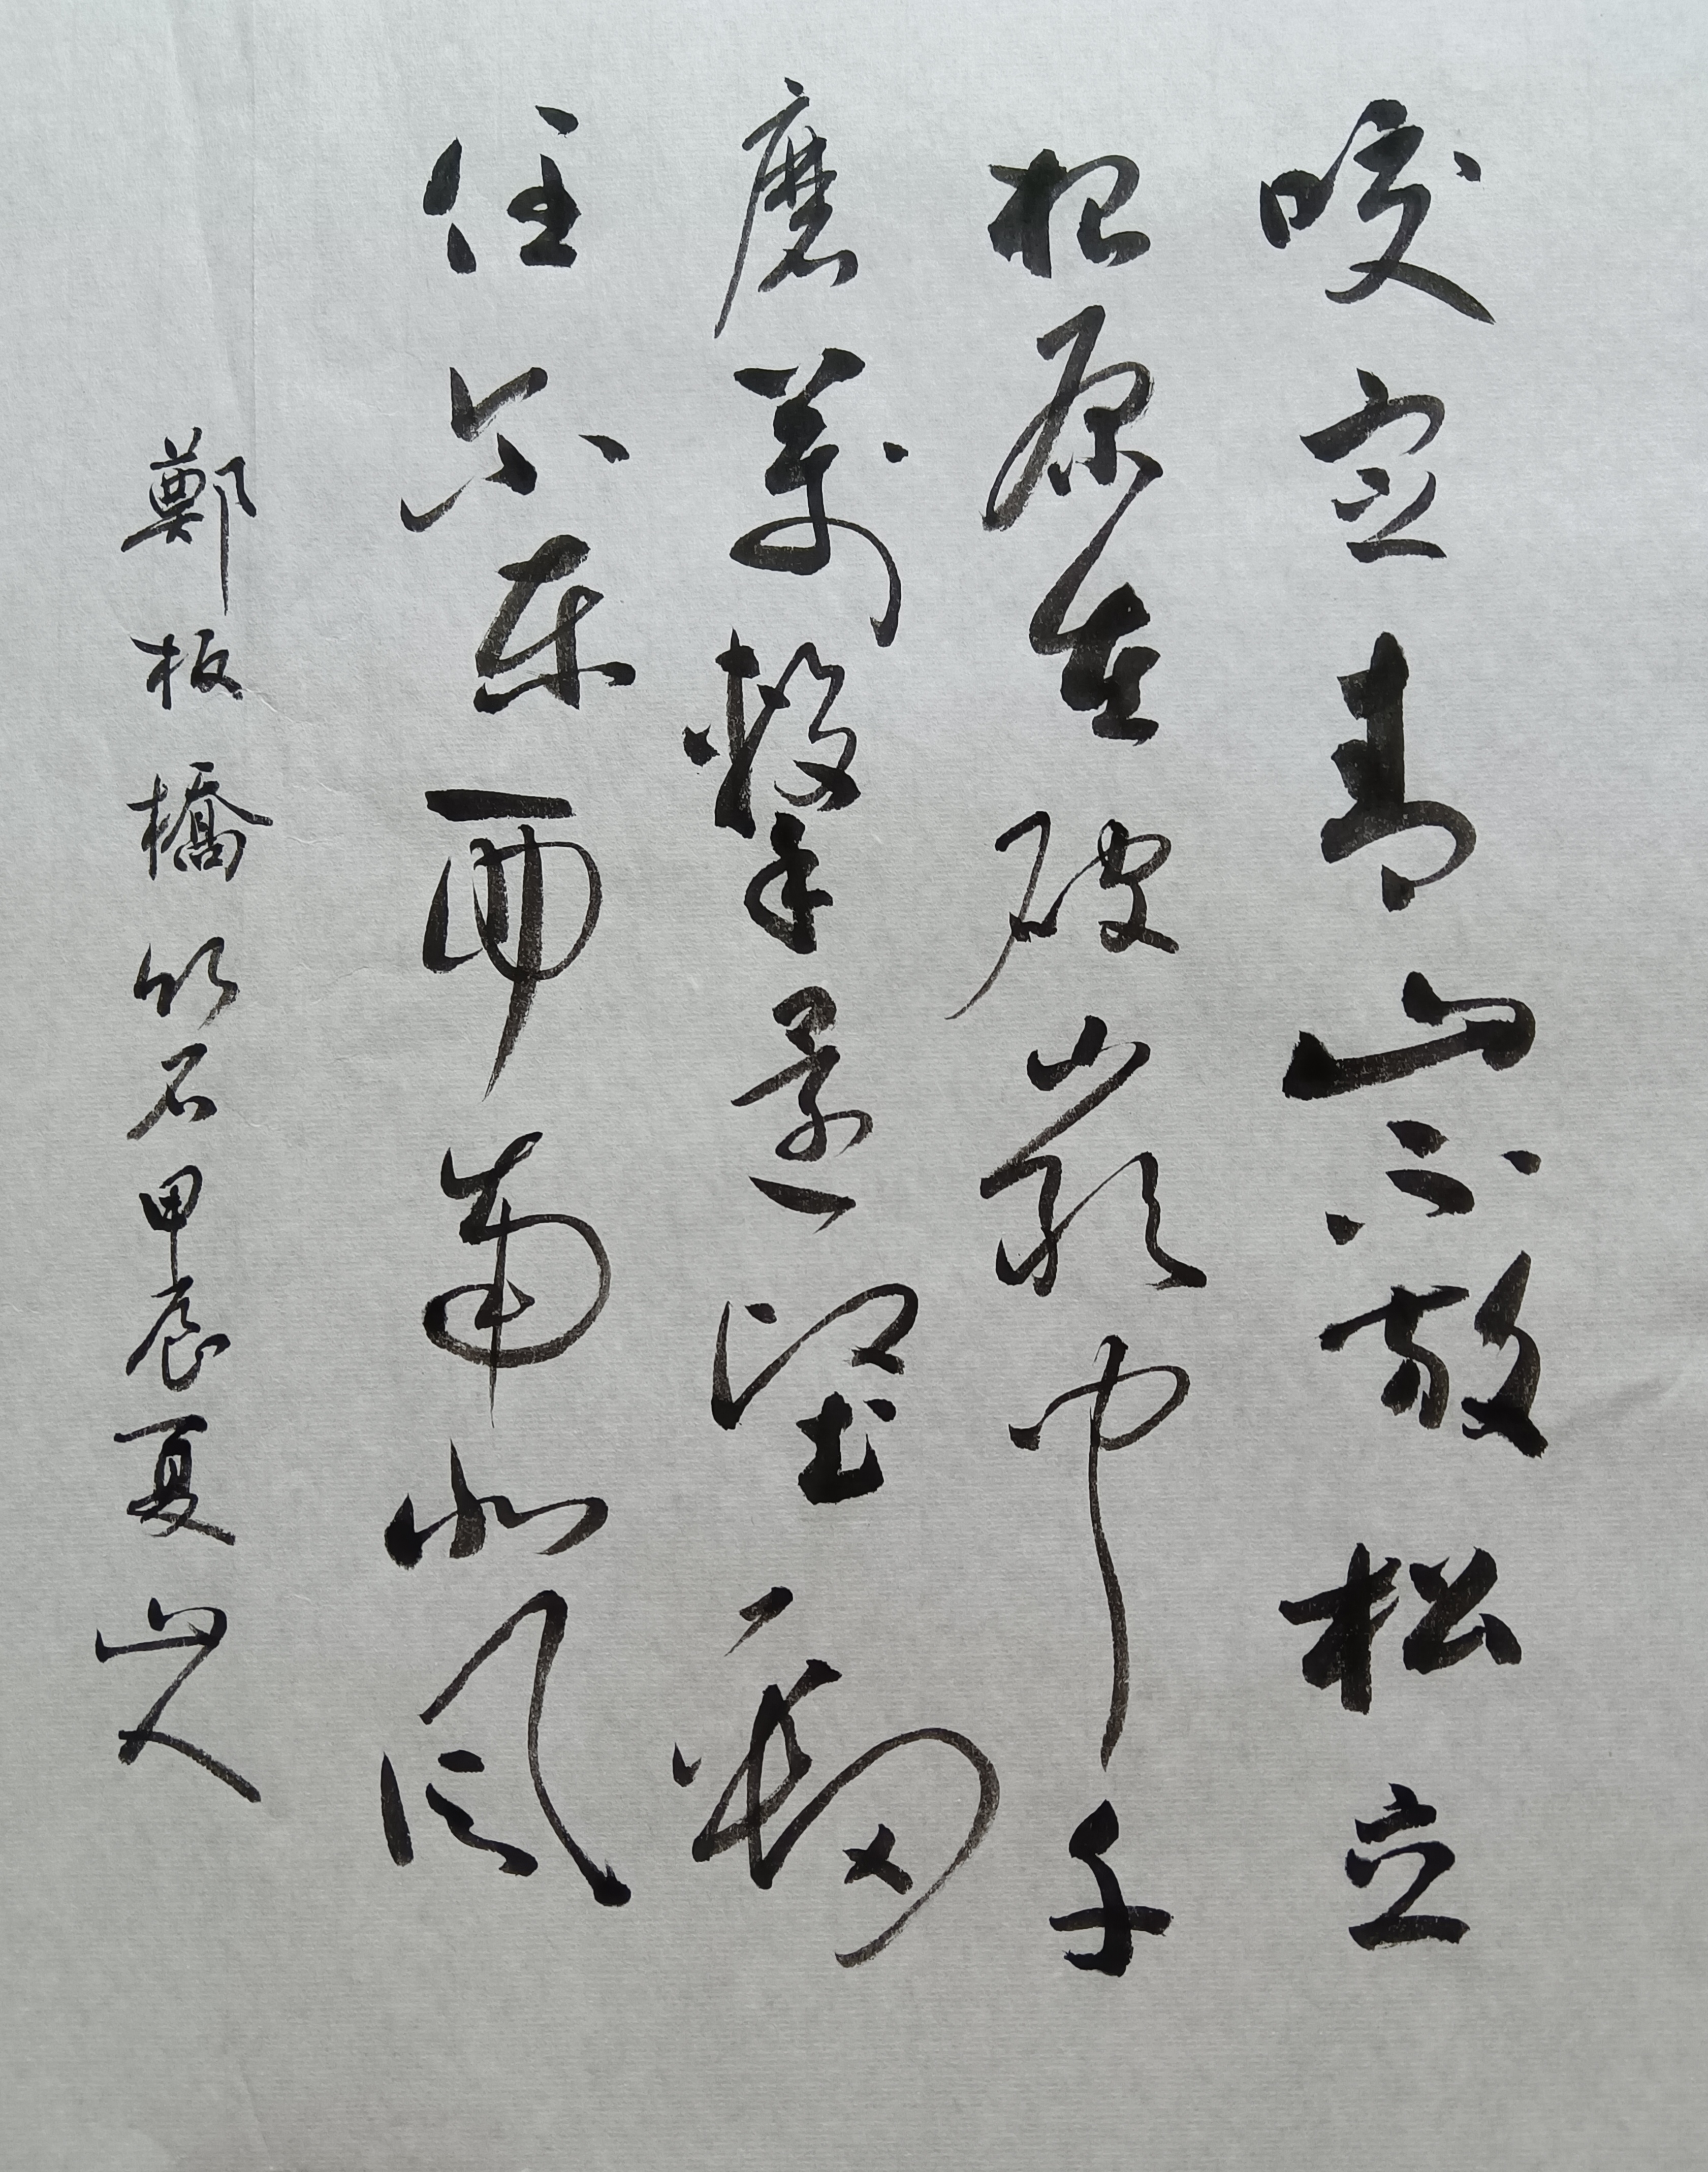 咬定青山不放松立
根原在破巖中千
磨萬擊還堅勁
任尔东西南北风
鄭板橋竹石甲辰夏山人